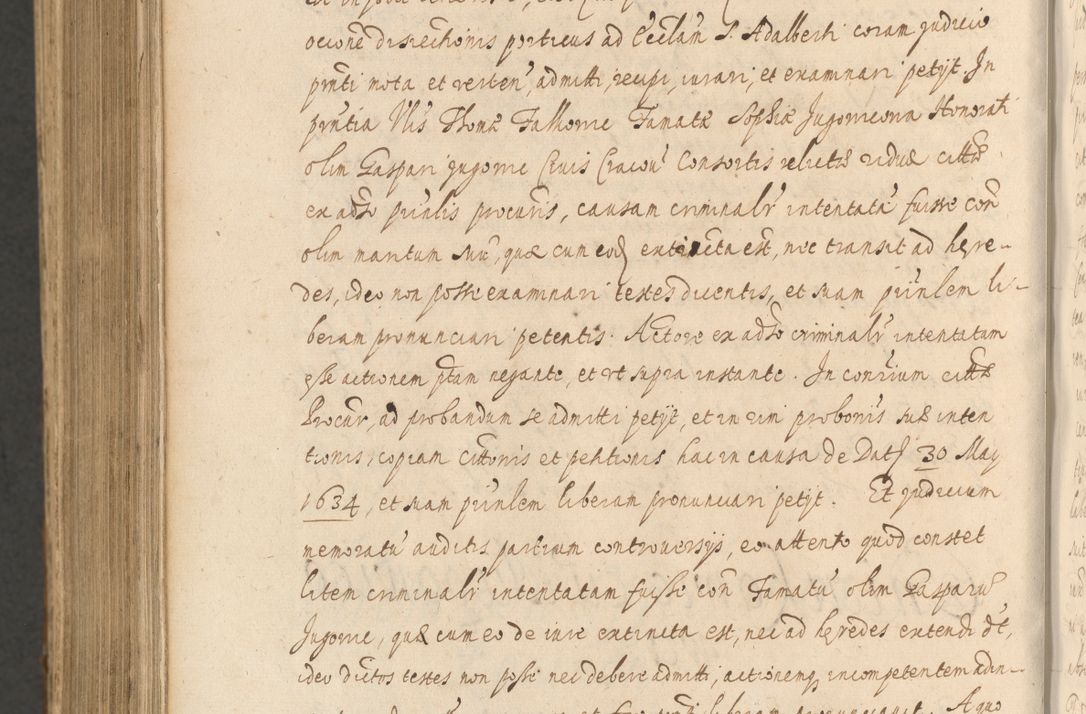 ocione directionis porticus ad Eccłam S. Adalberti coram judicio
pnti mota et verten, admitti, recipi, iurari, et examinari petyt. In
pntia Nlis Thomæ Famatæ Sophiæ Jugomeona Honorati
olim Gaspari Jugome Civis Cracov Consortis relictæ viduæ cittæ
ex adso prinlis procuris, causam criminalr intentata fuisse con
olim maritum suu, quæ cum eod extincta est, nec transit ad hære-
des, ideo non posse examinari testes dicentis, et suam prinlem li-
beram pronunciari petentis. Actore ex adso criminalr intentatam
esse actionem ptam negante, et ut supra instante. In contrium cittæ
Procur, ad probandum se admitti petyt, et in vim probonis suæ inten
tionis, copiam cittonis et petitionis hac in causa de Dat 30 May
1634, et suam prinlem liberam pronunciari petyt. Et judicium
memoratu auditis partium controversys, eo attento quod constet
litem criminalr intentatam fuisse con Famatu olim Gasparu
Jugome, quæ cum eo de iure extincta est, nec ad hæredes extendi dt,
ideo dictos testes non posse nec debere admitti, actionemq incompetentem adin-
et liberam A quo